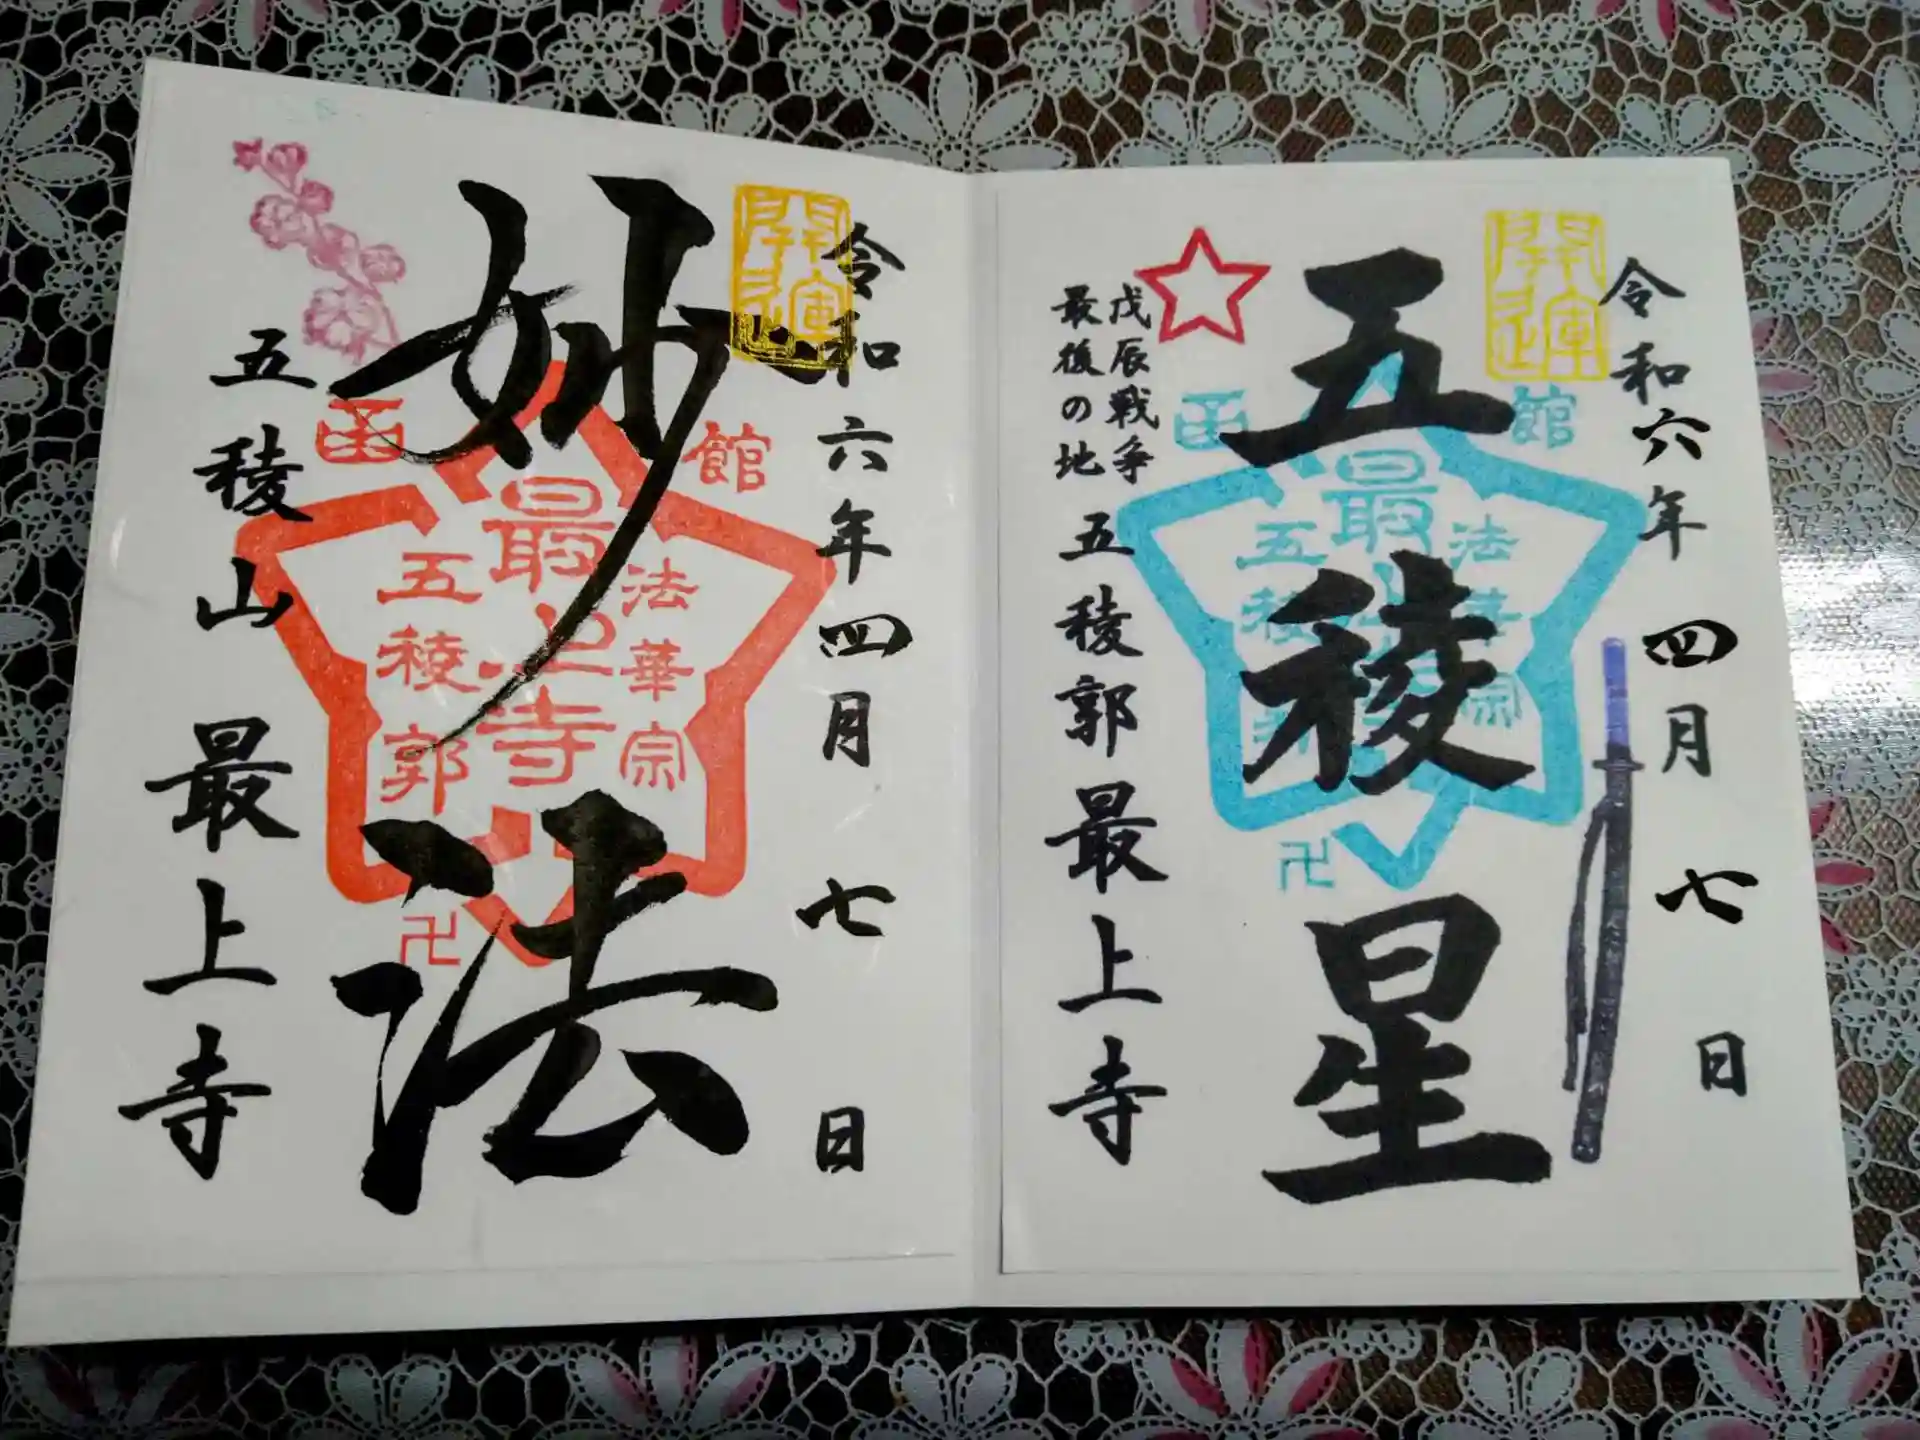 令和六年四月七日
開運
五稜星
函館
法華宗
最上寺
五稜郭
卍
戊辰戦争
最後の地
五稜郭最上寺
令和六年四月七日
開運
妙法
函館
法華宗
最上寺
五稜郭
卍
五稜山最上寺